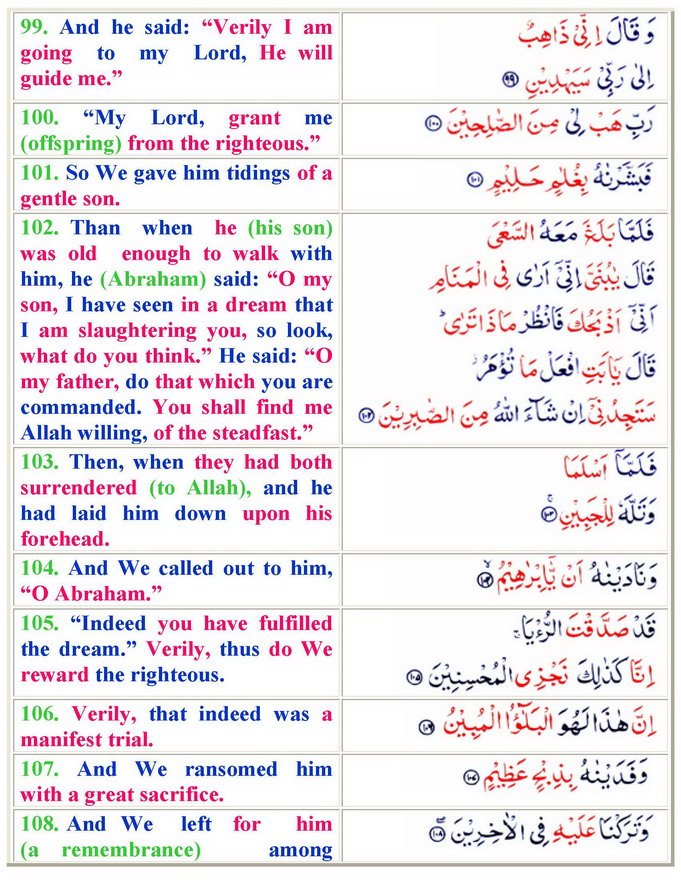 99. And he said: “Verily I am
going to my Lord, He will
guide me.”
وَ قَالَ اِنِّىْ ذَاهِبٌ
اِلٰى رَبِّىْ سَيَهْدِيْنِ ۹۹
100. “My Lord, grant me
(offspring) from the righteous.”
رَبِّ هَبْ لِىْ مِنَ الصّٰلِحِيْنَ ۱۰۰
101. So We gave him tidings of a
gentle son.
فَبَشَّرْنٰهُ بِغُلٰمٍ حَلِيْمٍ ۱۰۱
102. Than when he (his son)
was old enough to walk with
him, he (Abraham) said: “O my
son, I have seen in a dream that
I am slaughtering you, so look,
what do you think.” He said: “O
my father, do that which you are
commanded. You shall find me
Allah willing, of the steadfast.”
فَلَمَّا بَلَغَ مَعَهُ السَّعْىَ
قَالَ يٰبُنَىَّ اِنِّىْۤ اَرٰى فِى الْمَنَامِ
اَنِّىْۤ اَذْبَحُكَ فَانْظُرْ مَاذَا تَرٰىؕ
قَالَ يٰۤاَبَتِ افْعَلْ مَا تُؤْمَرُ
سَتَجِدُنِىْۤ اِنْ شَآءَ اللّٰهُ مِنَ الصّٰبِرِيْنَ ۱۰۲
103. Then, when they had both
surrendered (to Allah), and he
had laid him down upon his
forehead.
فَلَمَّاۤ اَسْلَمَا
وَتَلَّهٗ لِلْجَبِيْنِۚ ۱۰۳
104. And We called out to him,
“O Abraham.”
وَنَادَيْنٰهُ اَنْ يّٰۤاِبْرٰهِيْمُۙ ۱۰۴
105. “Indeed you have fulfilled
the dream.” Verily, thus do We
reward the righteous.
قَدْ صَدَّقْتَ الرُّءْيَاۚ
اِنَّا كَذٰلِكَ نَجْزِى الْمُحْسِنِيْنَ ۱۰۵
106. Verily, that indeed was a
manifest trial.
اِنَّ هٰذَا لَهُوَ الْبَلٰٓؤُا الْمُبِيْنُ ۱۰۶
107. And We ransomed him
with a great sacrifice.
وَفَدَيْنٰهُ بِذِبْحٍ عَظِيْمٍ ۱۰۷
108. And We left for him
(a remembrance) among
وَتَرَكْنَا عَلَيْهِ فِى الْاٰخِرِيْنَ ۱۰۸